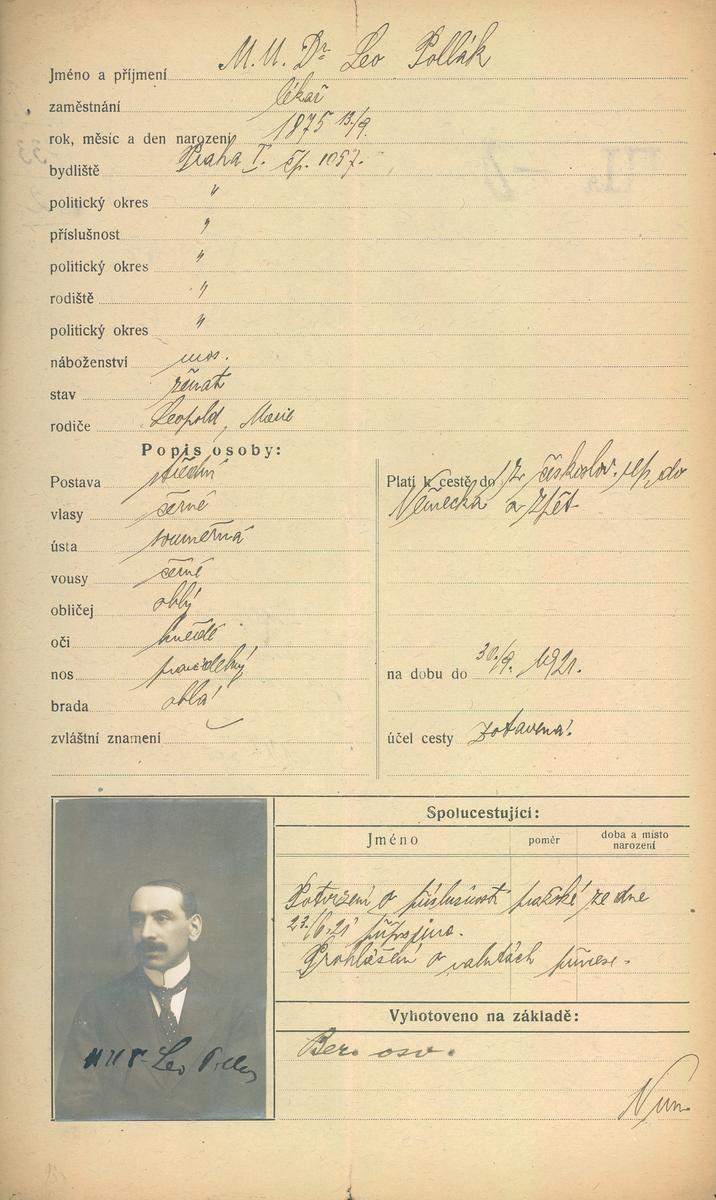 Jméno a příjmení M. U. Dr Leo Pollák
zaměstnání lékař
rok, měsíc a den narození 1875 13/9.
bydliště Praha I. čp. 1057.
politický okres "
příslušnost "
politický okres "
rodiště "
politický okres "
náboženství mos.
stav ženat
rodiče Leopold, Marie
Popis osoby:
Postava střední
vlasy černé
ústa souměrná
vousy černé
obličej oblý
oči hnědé
nos pravidelný
brada oblá
zvláštní znamení
Platí k cestě do z českoslov. rep. do
Německa a zpět
na dobu do 30/9. 1921.
účel cesty zotavená.
Spolucestující:
Jméno poměr doba a místo
narození
Potvrzení o příslušnosti pražské ze dne
23/6.21 připojeno.
Prohlášení o valutách přinese.
Vyhotoveno na základě:
osv.
Leo